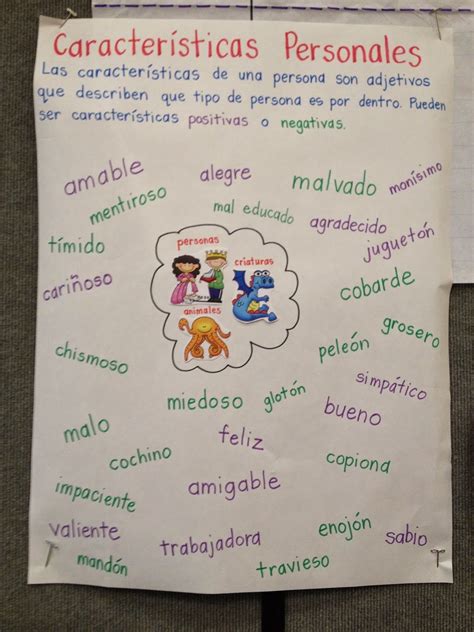 Características Personales
Las características de una persona son adjetivos
que describen que tipo de persona es por dentro. Pueden
ser características positivas o negativas.
amable
alegre
malvado
monísimo
mentiroso
mal educado
agradecido
juguetón
tímido
personas
criaturas
cariñoso
cobarde
animales
grosero
chismoso
peleón
simpático
miedoso
glotón
bueno
malo
feliz
cochino
copiona
impaciente
amigable
valiente
trabajadora
enojón
sabio
mandón
travieso